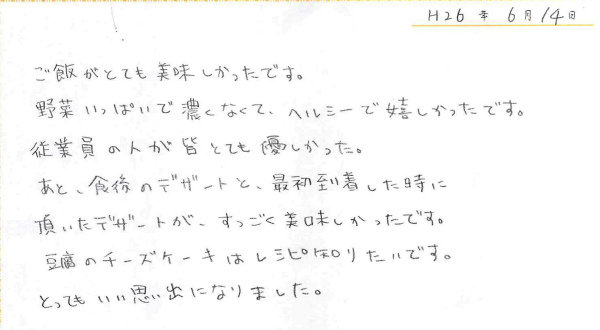 H26年 6月14日
ご飯がとても美味しかったです。
野菜いっぱいで濃くなくて、ヘルシーで嬉しかったです。
従業員の人が皆とても優しかった。
あと、食後のデザートと、最初到着した時に
頂いたデザートが、すっごく美味しかったです。
豆腐のチーズケーキはレシピ知りたいです。
とってもいい思い出になりました。